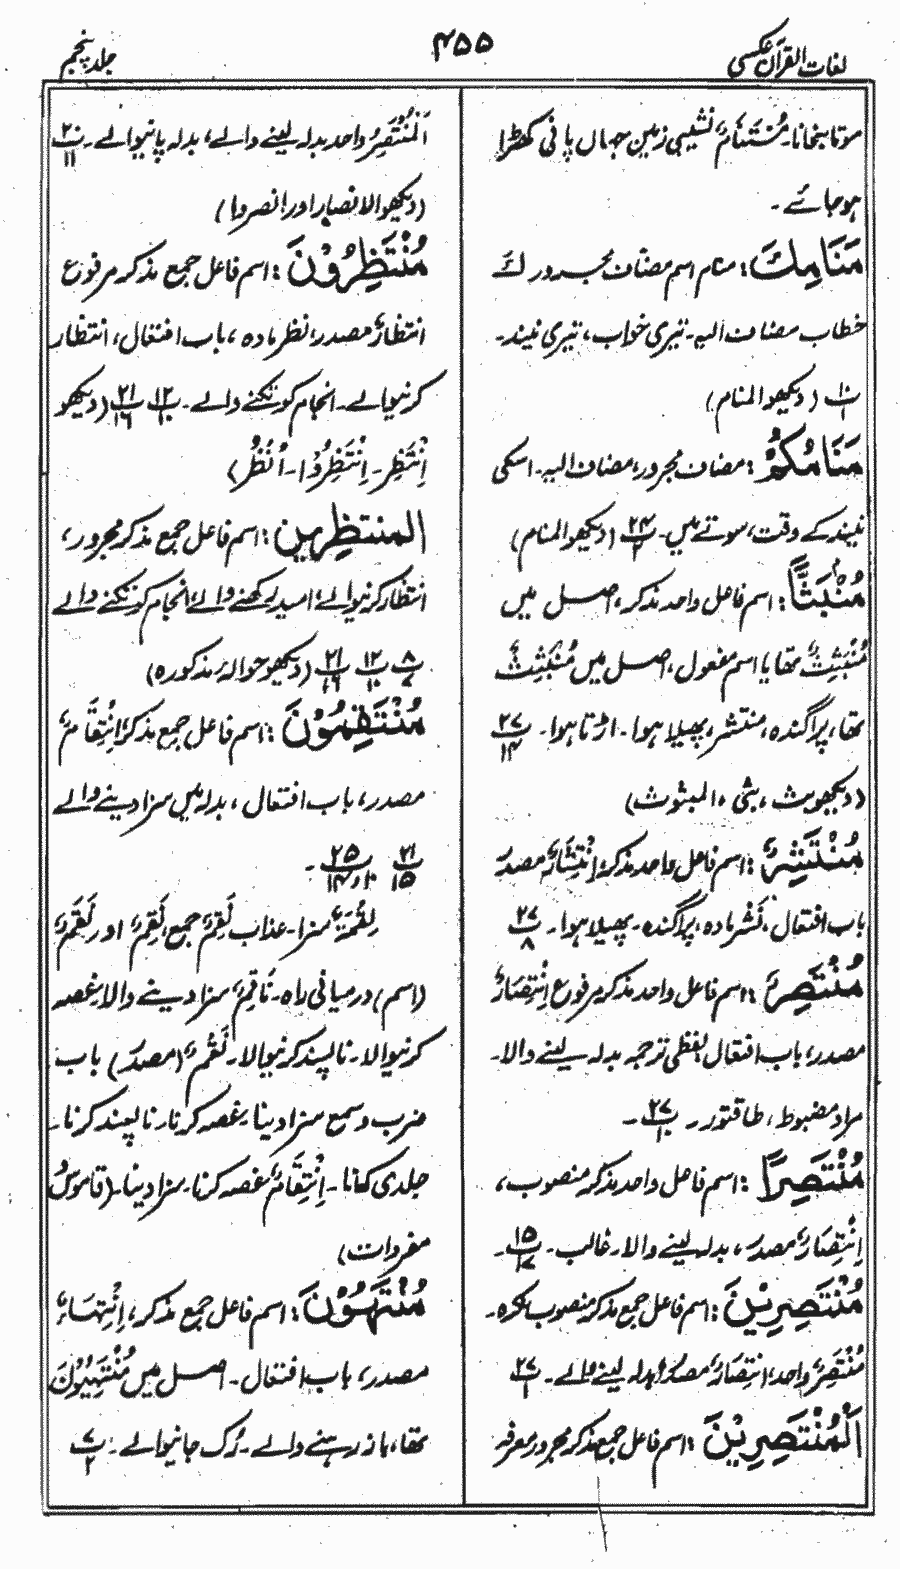 لغات القرآن عکسی
۴۵۵
جلد پنجم
سوتا بنجانا۔ مُسْتَنَامٌ، نشیبی زمین جہاں پانی کھڑا
ہو جائے۔
مَنَامِكَ: منام اسم مضاف مجرور ك
خطاب مضاف الیہ۔ تیری خواب، تیری نیند۔
۱۰/۱ (دیکھو المنام)
مَنَامُكُمْ: مضاف مجرور، مضاف الیہ۔ اسکی
نیند کے وقت، سوتے میں۔ (دیکھو المنام)
مُنْبَثًّا: اسم فاعل واحد مذکر، اصل میں
مُنْبَثِثٌ تھا یا اسم مفعول، اصل میں مُنْبَثَثٌ
تھا، پراگندہ، منتشر، پھیلا ہوا۔ اڑتا ہوا۔ ۲۷/۱۴
(دیکھو بث، بثی، المبثوث)
مُنْتَشِرٌ: اسم فاعل واحد مذکر، اِنْتِشَارٌ مصدر
باب افتعال، نَشْرٌ مادہ، پراگندہ۔ پھیلا ہوا۔ ۲۷/۸
مُنْتَصِرٌ: اسم فاعل واحد مذکر مرفوع اِنْتِصَارٌ
مصدر، باب افتعال لفظی ترجمہ بدلہ لینے والا۔
مراد مضبوط، طاقتور۔ ۲۷/۱۰۔
مُنْتَصِرًا: اسم فاعل واحد مذکر منصوب،
اِنْتِصَارٌ مصدر، بدلہ لینے والا۔ غالب۔ ۱۵/۱۷۔
مُنْتَصِرِيْنَ: اسم فاعل جمع مذکر منصوب نکرہ۔
مُنْتَصِرٌ واحد، اِنْتِصَارٌ مصدر، بدلہ لینے والے۔ ۲۷/۱
اَلْمُنْتَصِرِيْنَ: اسم فاعل جمع مذکر مجرور معرفہ
اَلْمُنْتَصِرُ واحد بدلہ لینے والے، بدلہ پانیوالے۔ ۲۰/۱۱
(دیکھو الانصار اور انصروا)
مُنْتَظِرُوْنَ: اسم فاعل جمع مذکر مرفوع
انتظارٌ مصدر، نظر مادہ، باب افتعال، انتظار
کرنیوالے۔ انجام کو تکنے والے۔ ۱۲/۱۰ ۲۱/۱۶ (دیکھو
اِنْتَظِر۔ اِنْتَظِرُوْا۔ اُنْظُرْ)
المنتظرین: اسم فاعل جمع مذکر مجرور،
انتظار کرنیوالے، امید رکھنے والے، انجام کو تکنے والے
۸/۷ ۱۲/۱۰ ۲۱/۱۶ (دیکھو حوالۂ مذکورہ)
مُنْتَقِمُوْنَ: اسم فاعل جمع مذکر، اِنْتِقَامٌ
مصدر، باب افتعال، بدلہ میں سزا دینے والے
۲۱/۱۵ ۲۵/۱۰و۱۴۔
نِقْمَةٌ سزا۔ عذاب نَقِمٌ جمع، نَقِمٌ اور نَقَمٌ
(اسم) درمیانی راہ۔ نَاقِمٌ سزا دینے والا، غصہ
کرنیوالا۔ ناپسند کرنیوالا۔ نَقْمٌ (مصدر) باب
ضرب وسمع سزا دینا۔ غصہ کرنا۔ ناپسند کرنا۔
جلدی کھانا۔ اِنْتِقَامٌ غصہ کرنا۔ سزا دینا۔ (قاموس و
مفردات)
مُنْتَهُوْنَ: اسم فاعل جمع مذکر، اِنْتِهَاءٌ
مصدر، باب افتعال۔ اصل میں مُنْتَهِيُوْنَ
تھا، باز رہنے والے۔ رُک جانیوالے۔ ۷/۲